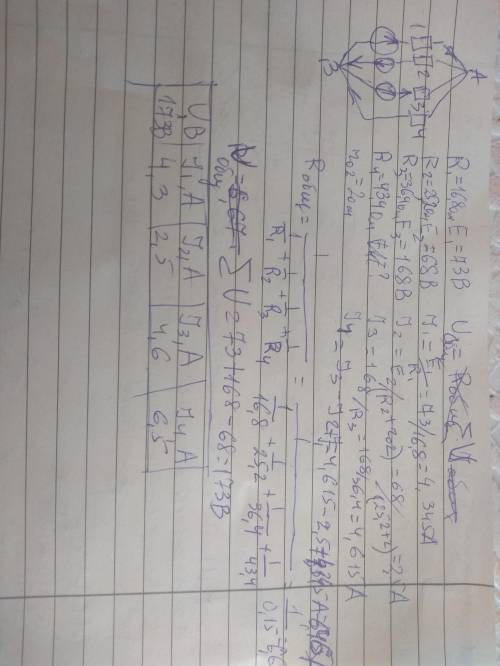 1
2
3
4
A
B
R1=16,8Ом E1=73В Uобщ=
R2= E2=68В J1=E1/R1=73/16,8=4,345А
R3=36,4Ом E3=168В J2=E2/(R2+r02)=68/(25,2+2)=2,5А
R4=434Ом J3=168/R3=168/36,4=4,615А
r02=2Ом J4=J3-J2+J1=4,615-2,5+
Rобщ=1/(1/R1+1/R2+1/R3+1/R4)=1/(1/16,8+1/25,2+1/36,4+1/434)=1/0,15=6,6
ΣU=73+168-68=173В
U,В J1,А J2,А J3,А J4,А
173 4,3 2,5 4,6 6,5